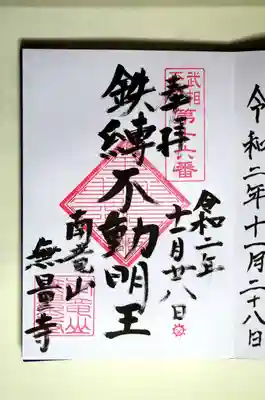 令和二年十一月二十八日
武相
第十六番
奉拝
令和二年
十一月廿八日
鉄縛不動明王
南竜山
無量寺